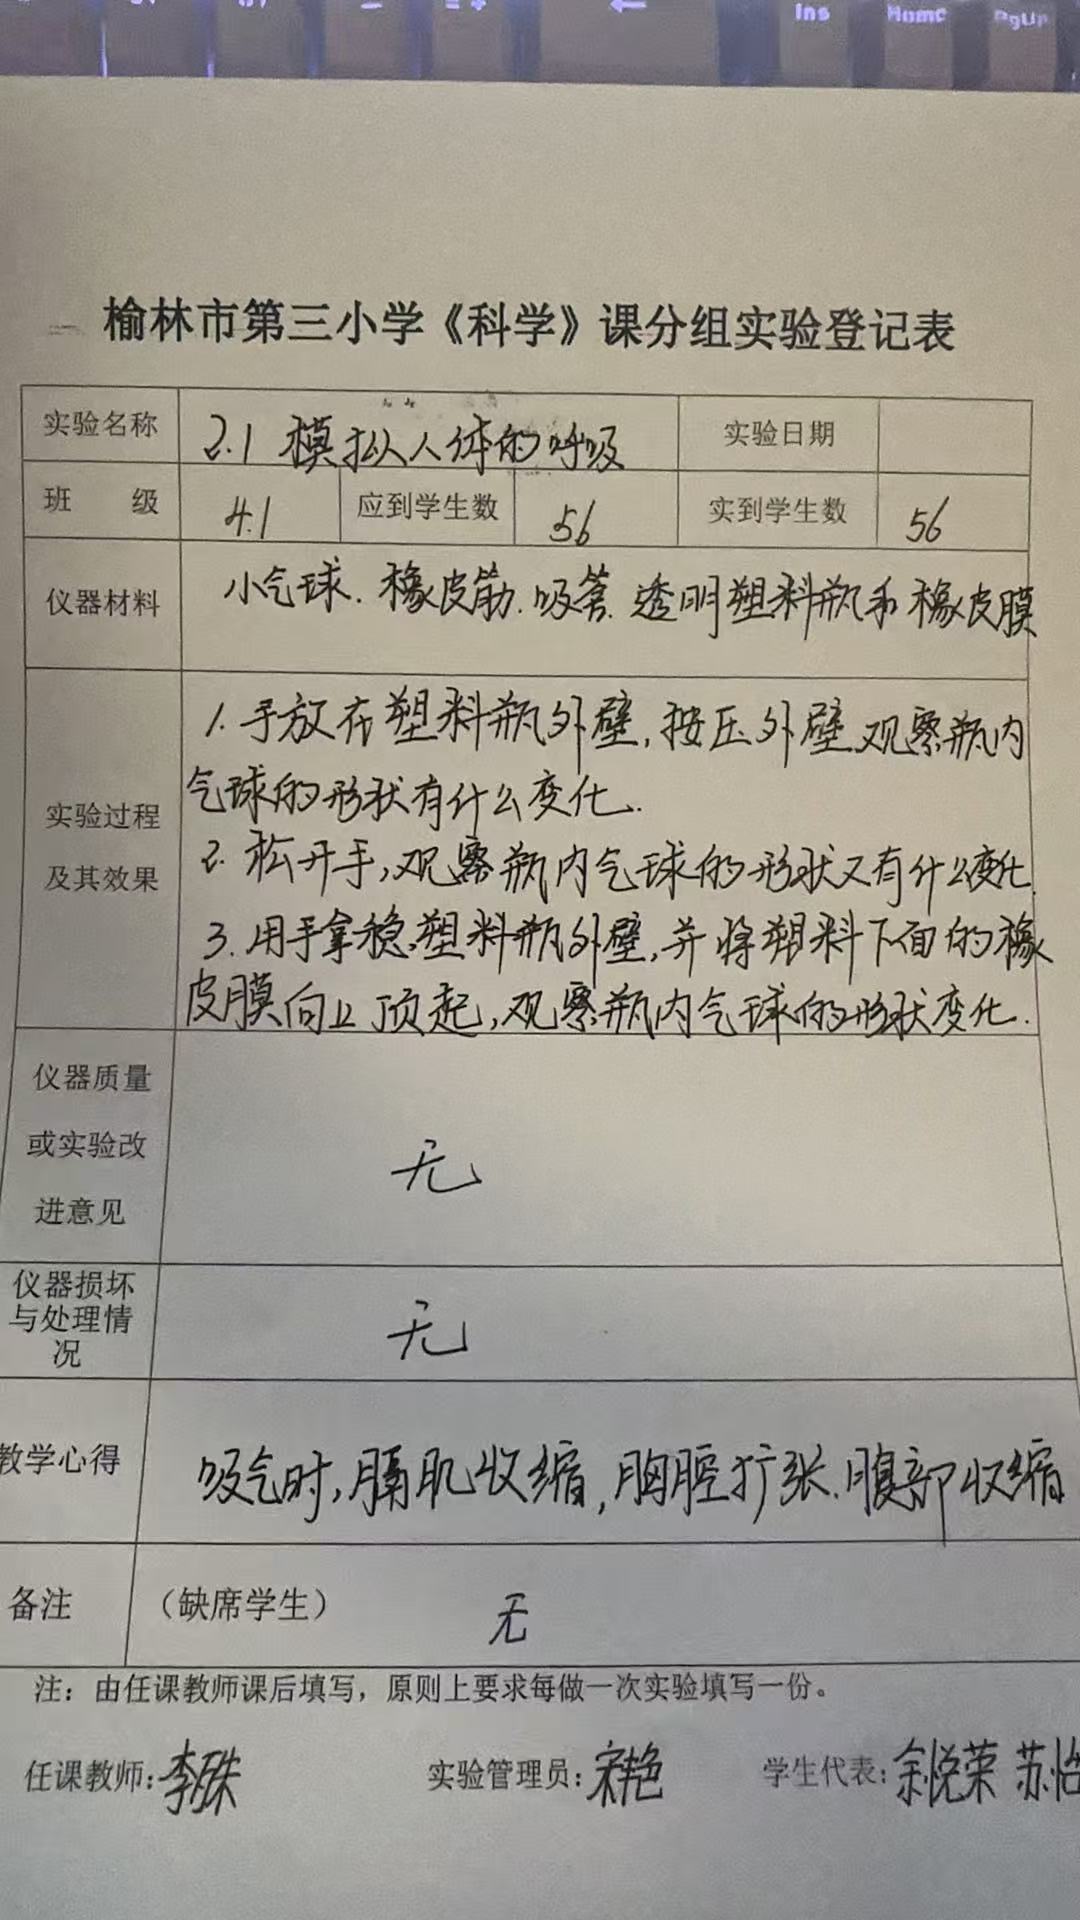 Ins Home PgUp
榆林市第三小学《科学》课分组实验登记表
实验名称 2.1 模拟人体的呼吸 实验日期
班 级 4.1 应到学生数 56 实到学生数 56
仪器材料 小气球.橡皮筋.吸管.透明塑料瓶和橡皮膜
1.手放在塑料瓶外壁,按压外壁观察瓶内
气球的形状有什么变化.
实验过程
及其效果
2.松开手,观察瓶内气球的形状又有什么变化.
3.用手拿稳塑料瓶外壁,并将塑料下面的橡
皮膜向上顶起,观察瓶内气球的形状变化.
仪器质量
或实验改
进意见
无
仪器损坏
与处理情
况
无
教学心得 吸气时,膈肌收缩,胸腔扩张.腹部收缩
备注 (缺席学生) 无
注：由任课教师课后填写，原则上要求每做一次实验填写一份。
任课教师: 实验管理员:宋艳 学生代表:余悦荣 苏怡